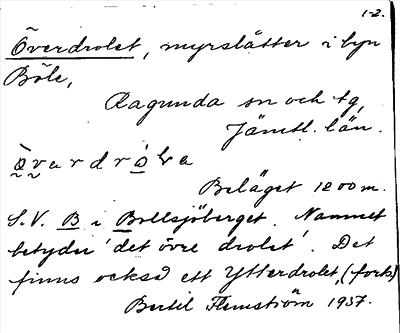 1-2.
Överdrolet, myrslåtter i byn
Böle,
Ragunda sn och tg,
Jämtl. län.
Beläget 1200 m.
S.V. B i Bollsjöberget. Namnet
betyder 'det övre drolet'. Det
finns också ett Ytterdrolet, (forts)
Bertil Flemström 1937.